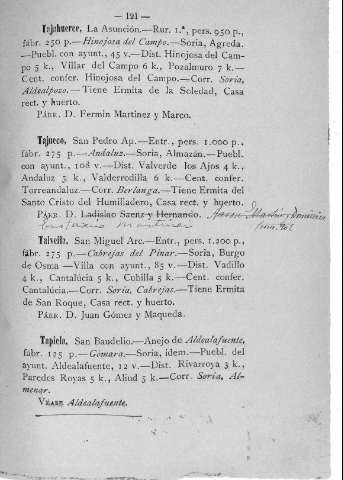 — 121 —
Tajahuerce, La Asunción.—Rur. 1.ª, pers. 950 p.,
fábr. 250 p.—Hinojosa del Campo.—Soria, Agreda.
—Puebl. con ayunt., 45 v.—Dist. Hinojosa del Cam-
po 5 k., Villar del Campo 6 k., Pozalmuro 7 k.—
Cent. confer. Hinojosa del Campo.—Corr. Soria,
Aldealpozo.—Tiene Ermita de la Soledad, Casa
rect. y huerto.
PÁRR. D. Fermín Martínez y Marco.
Tajueco, San Pedro Ap.—Entr., pers. 1.000 p.,
fábr. 175 p.—Andaluz.—Soria, Almazán.—Puebl.
con ayunt., 108 v.—Dist. Valverde los Ajos 4 k.,
Andaluz 5 k., Valderrodilla 6 k.—Cent. confer.
Torreandaluz.—Corr. Berlanga.—Tiene Ermita del
Santo Cristo del Humilladero, Casa rect. y huerto.
PÁRR. D. Ladislao Saenz y Hernando.
Martínez
Talveila, San Miguel Arc.—Entr., pers. 1.200 p.,
fábr. 275 p.—Cabrejas del Pinar.—Soria, Burgo
de Osma—Villa con ayunt., 85 v.—Dist. Vadillo
4 k., Cantalúcia 5 k., Cubilla 5 k.—Cent. confer.
Cantalúcia.—Corr. Soria, Cabrejas.—Tiene Ermita
de San Roque, Casa rect. y huerto.
PÁRR. D. Juan Gómez y Maqueda.
Tapiela, San Baudelio.—Anejo de Aldealafuente,
fábr. 125 p.—Gómara.—Soria, idem.—Puebl. del
ayunt. Aldealafuente, 12 v.—Dist. Rivarroya 3 k.,
Paredes Royas 5 k., Aliud 3 k.—Corr. Soria, Al-
menar.
VÉASE Aldealafuente.